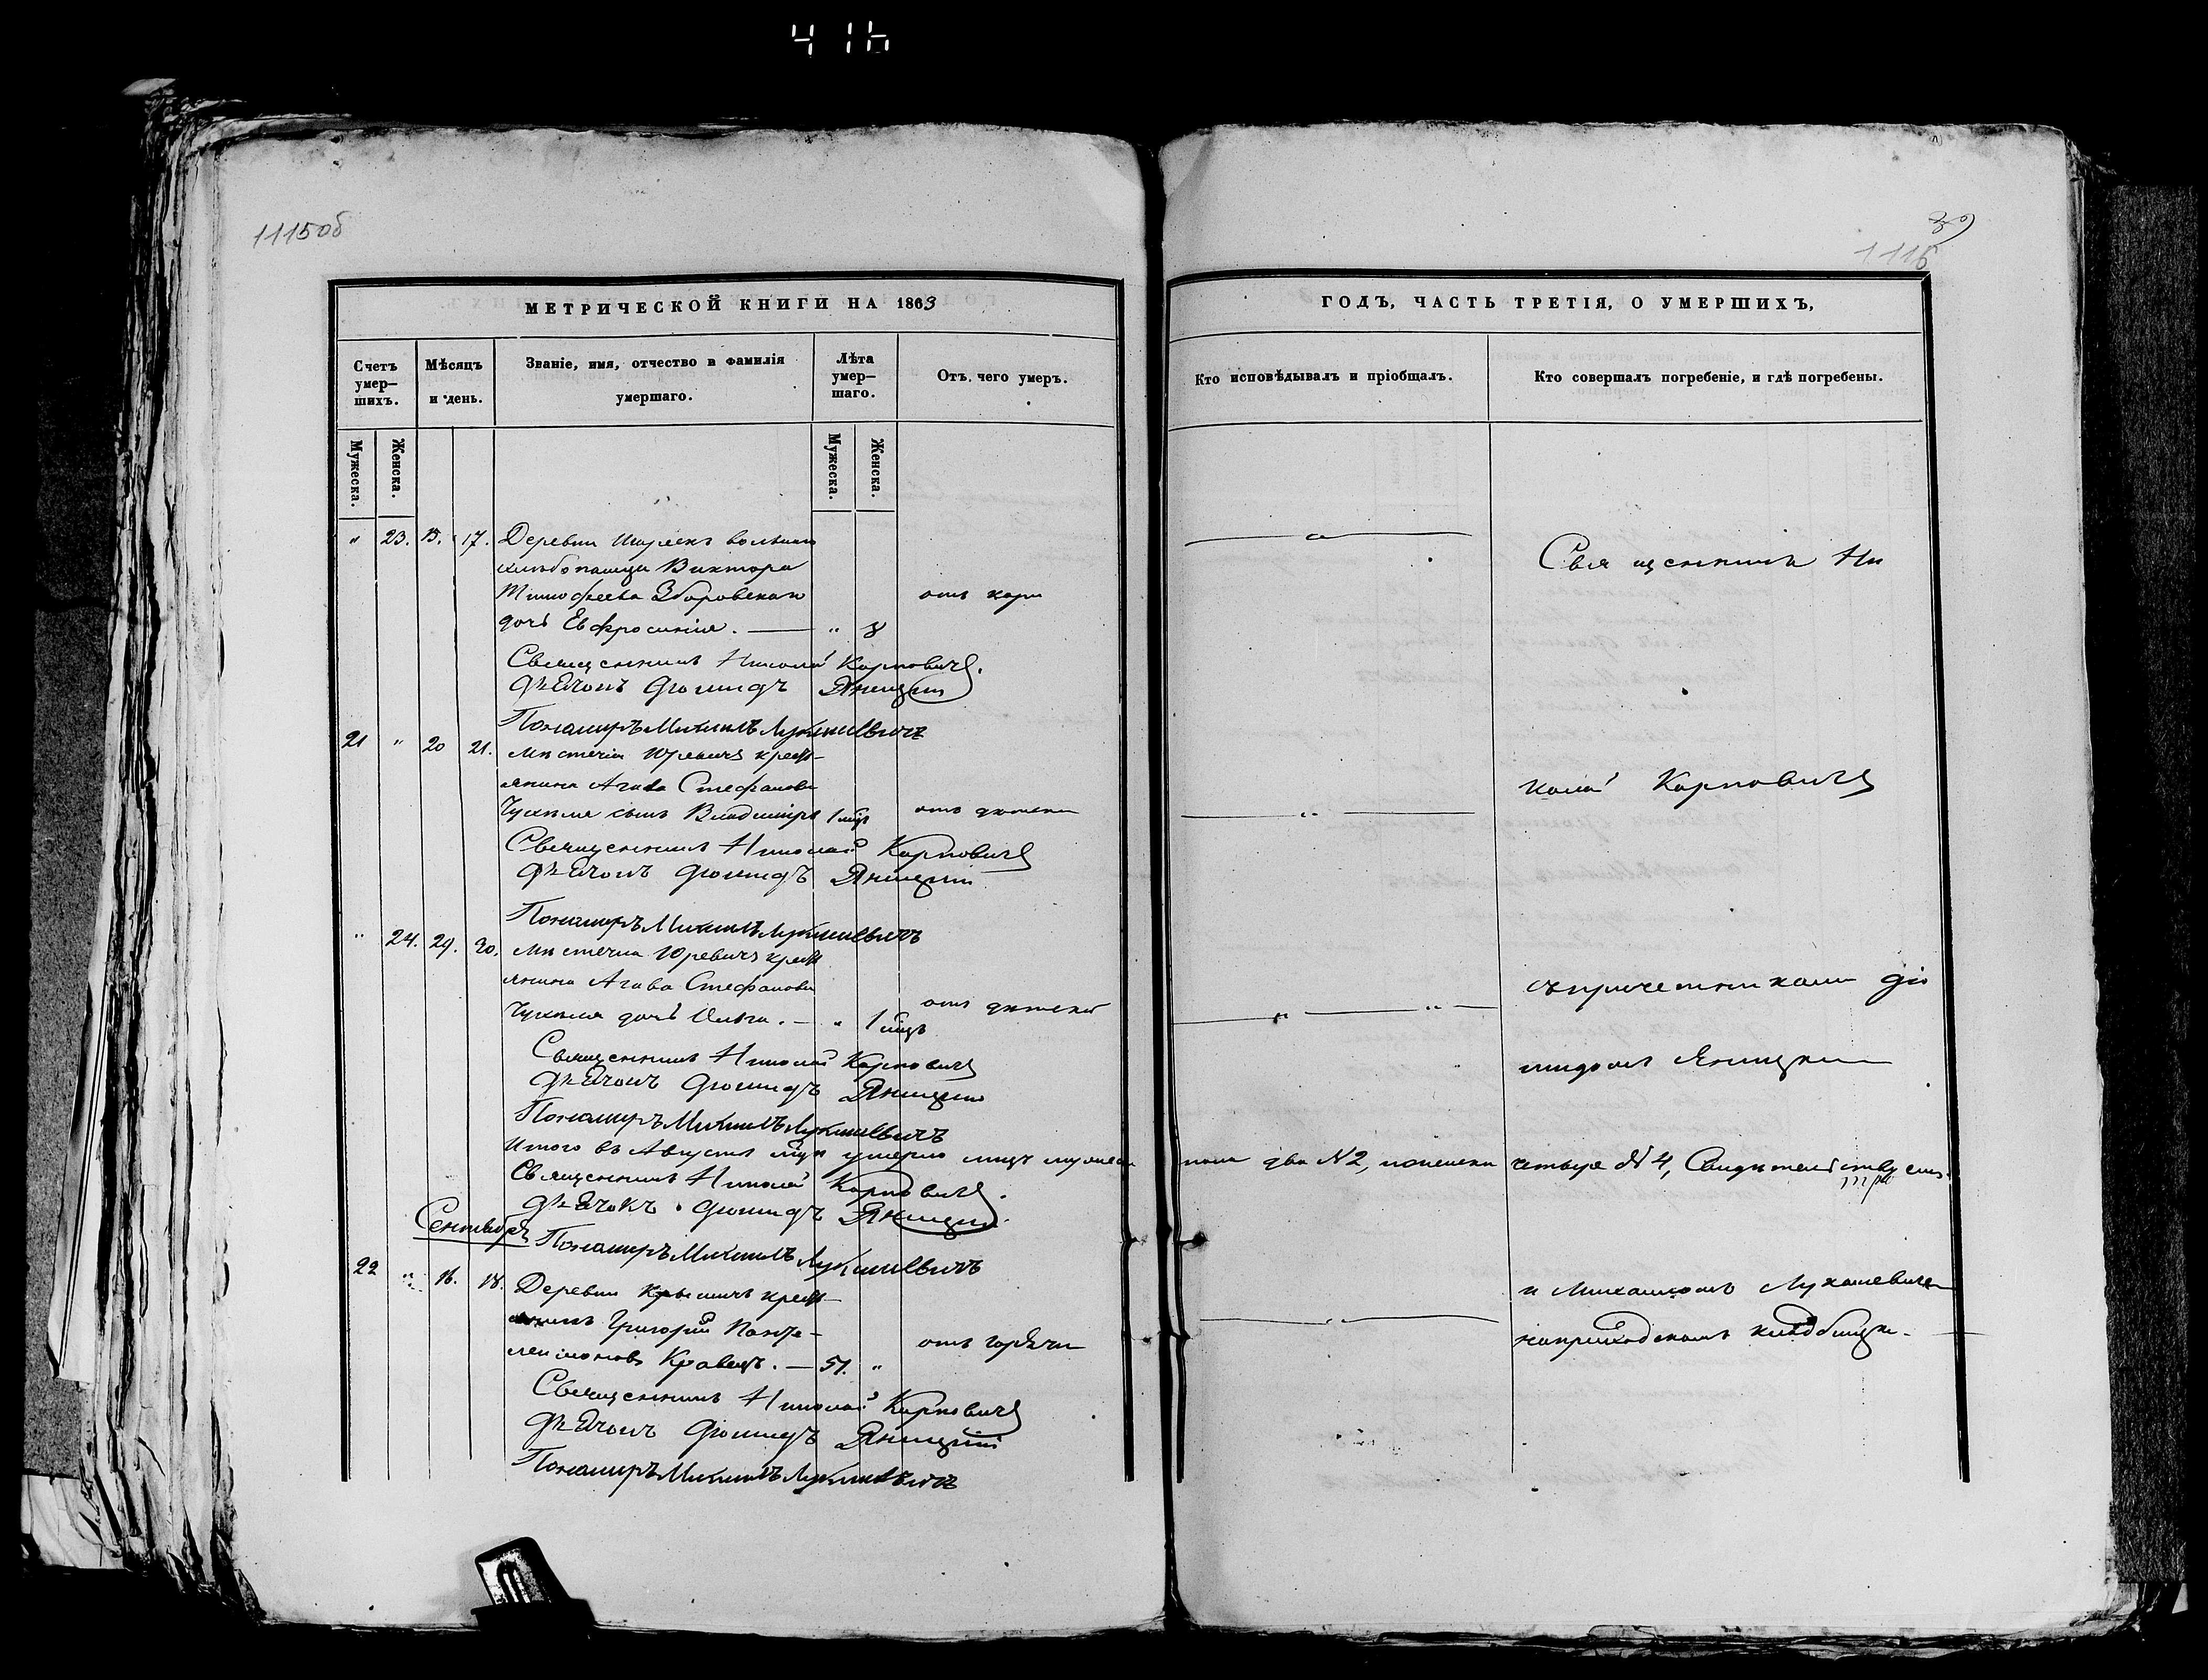 416
1115об
39
1116
МЕТРИЧЕСКОЙ КНИГИ НА 1863
ГОДЪ, ЧАСТЬ ТРЕТІЯ, О УМЕРШИХЪ,
Счетъ умер—шихъ.
Мѣсяцъ и день.
Званіе, имя, отчество и фамилія умершаго.
Лѣта умер—шаго.
Отъ чего умеръ.
Кто исповѣдывалъ и пріобщалъ.
Кто совершалъ погребеніе, и гдѣ погребены.
Мужеска.
Женска.
Мужеска.
Женска.
" 23. 15. 17. Деревни вольнаго
хлебопашца Виктора
Тимофеева Зборовскаго отъ кори
дочь Евфросинія. — " 8
Священникъ Николай Карповичъ.
Дьячокъ Діомидъ Яницкій
Пономарь Михаилъ Лукашевичъ
21 " 20 21. Мѣстечка Юревичъ крест—
янина Агава Стефанова
сынъ Владиміръ 1 мцъ отъ
Священникъ Николай Карповичъ
Дьячокъ Діомидъ Яницкій
Пономарь Михаилъ Лукашевичъ
" 24. 29. 30. Мѣстечка Юревичъ крест
янина Агава Стефанова
дочь Ольга. — " 1 мцъ отъ
Священникъ Николай Карповичъ
Дьячокъ Діомидъ Яницкій
Пономарь Михаилъ Лукашевичъ
Итого въ Августѣ мцѣ умерло лицъ мужеска пола два №2, женска четыре №4,
Священникъ Николай Карповичъ.
Дьячокъ Діомидъ Яницкій.
Пономарь Михаилъ Лукашевичъ
Сентябрь
22 " 16. 18. Деревни крест—
янинъ Григорій Панте—
леимоновъ Кравецъ. — 51. " отъ горячки
Священникъ Николай Карповичъ
Дьячокъ Діомидъ Яницкій
Пономарь Михаилъ Лукашевичъ
Священникъ Ни
колай Карповичъ
съ причетниками Діо
мидомъ Яницкимъ
и Михаиломъ Лукашевичемъ
на приходскомъ кладбищѣ.